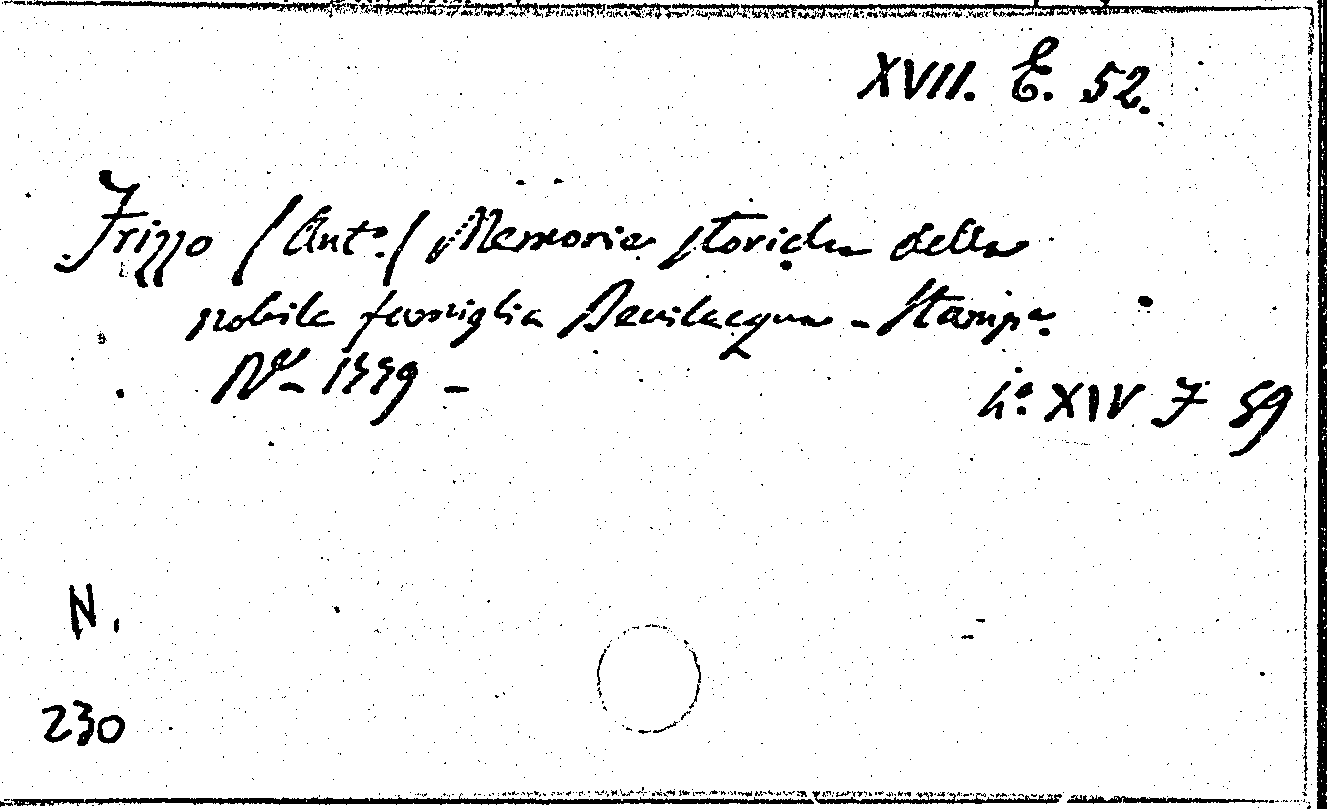 XVII. E. 52.
Frizzo (Ant.o) Memorie storiche della
nobile famiglia Bevilacqua - Stamp.a
1779 -
4.o XIV F 59
N.
230